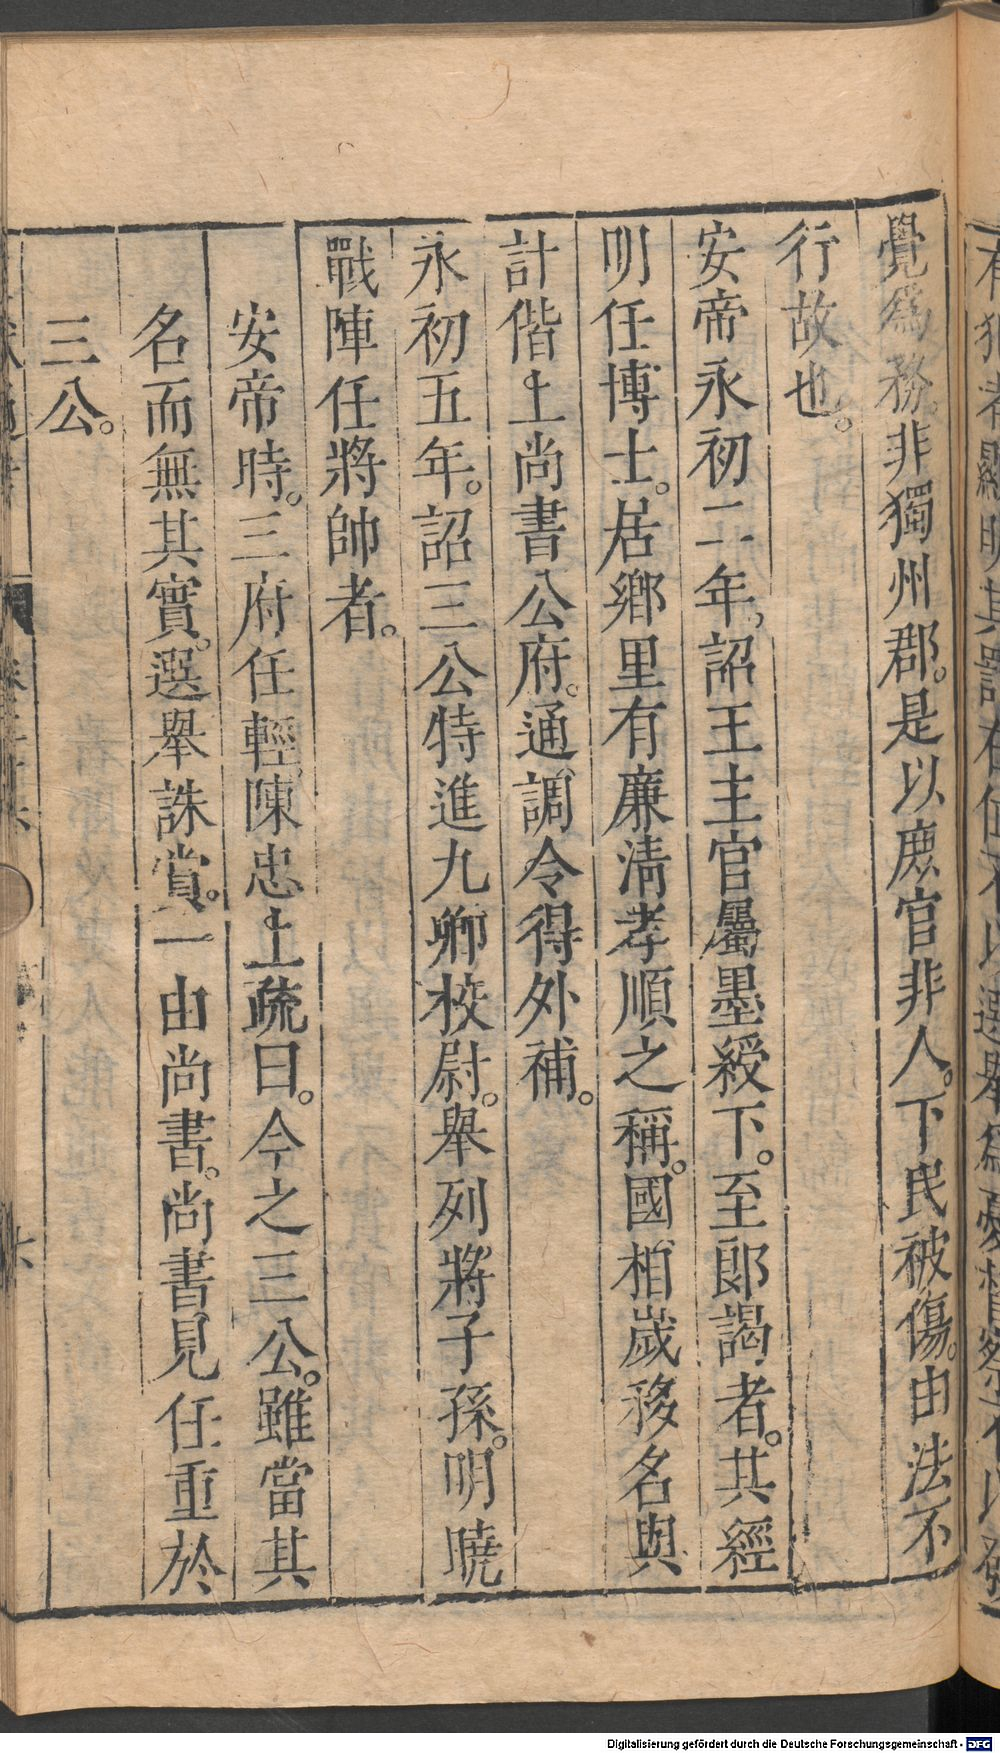 覺爲務。非獨州郡。是以庶官非人。下民被傷。由法不
行故也。
安帝永初二年，詔王主官屬墨綬下。至郎謁者。其經
明任博士。居鄉里有廉淸孝順之稱。國相歲移名與
計偕上尚書公府。通調令得外補。
永初五年。詔三公特進九卿校尉。舉列將子孫。明曉
戰陣任將帥者。
安帝時。三府任輕，陳忠上疏曰。今之三公。雖當其
名而無其實。選舉誅賞。一由尚書。尚書見任重於
三公。
Digitalisierung gefördert durch die Deutsche Forschungsgemeinschaft - DFG